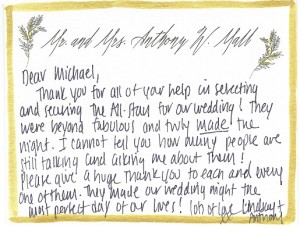 Mr. and Mrs. Anthony W. Mall
Dear Michael,
Thank you for all of your help in selecting
and securing the All-Stars for our wedding! They
were beyond fabulous and truly made the
night. I cannot tell you how many people are
still talking and asking me about them!
Please give a huge thank you to each and every
one of them. They made our wedding night the
most perfect day of our lives! Lots of love Lindsay +
Anthony